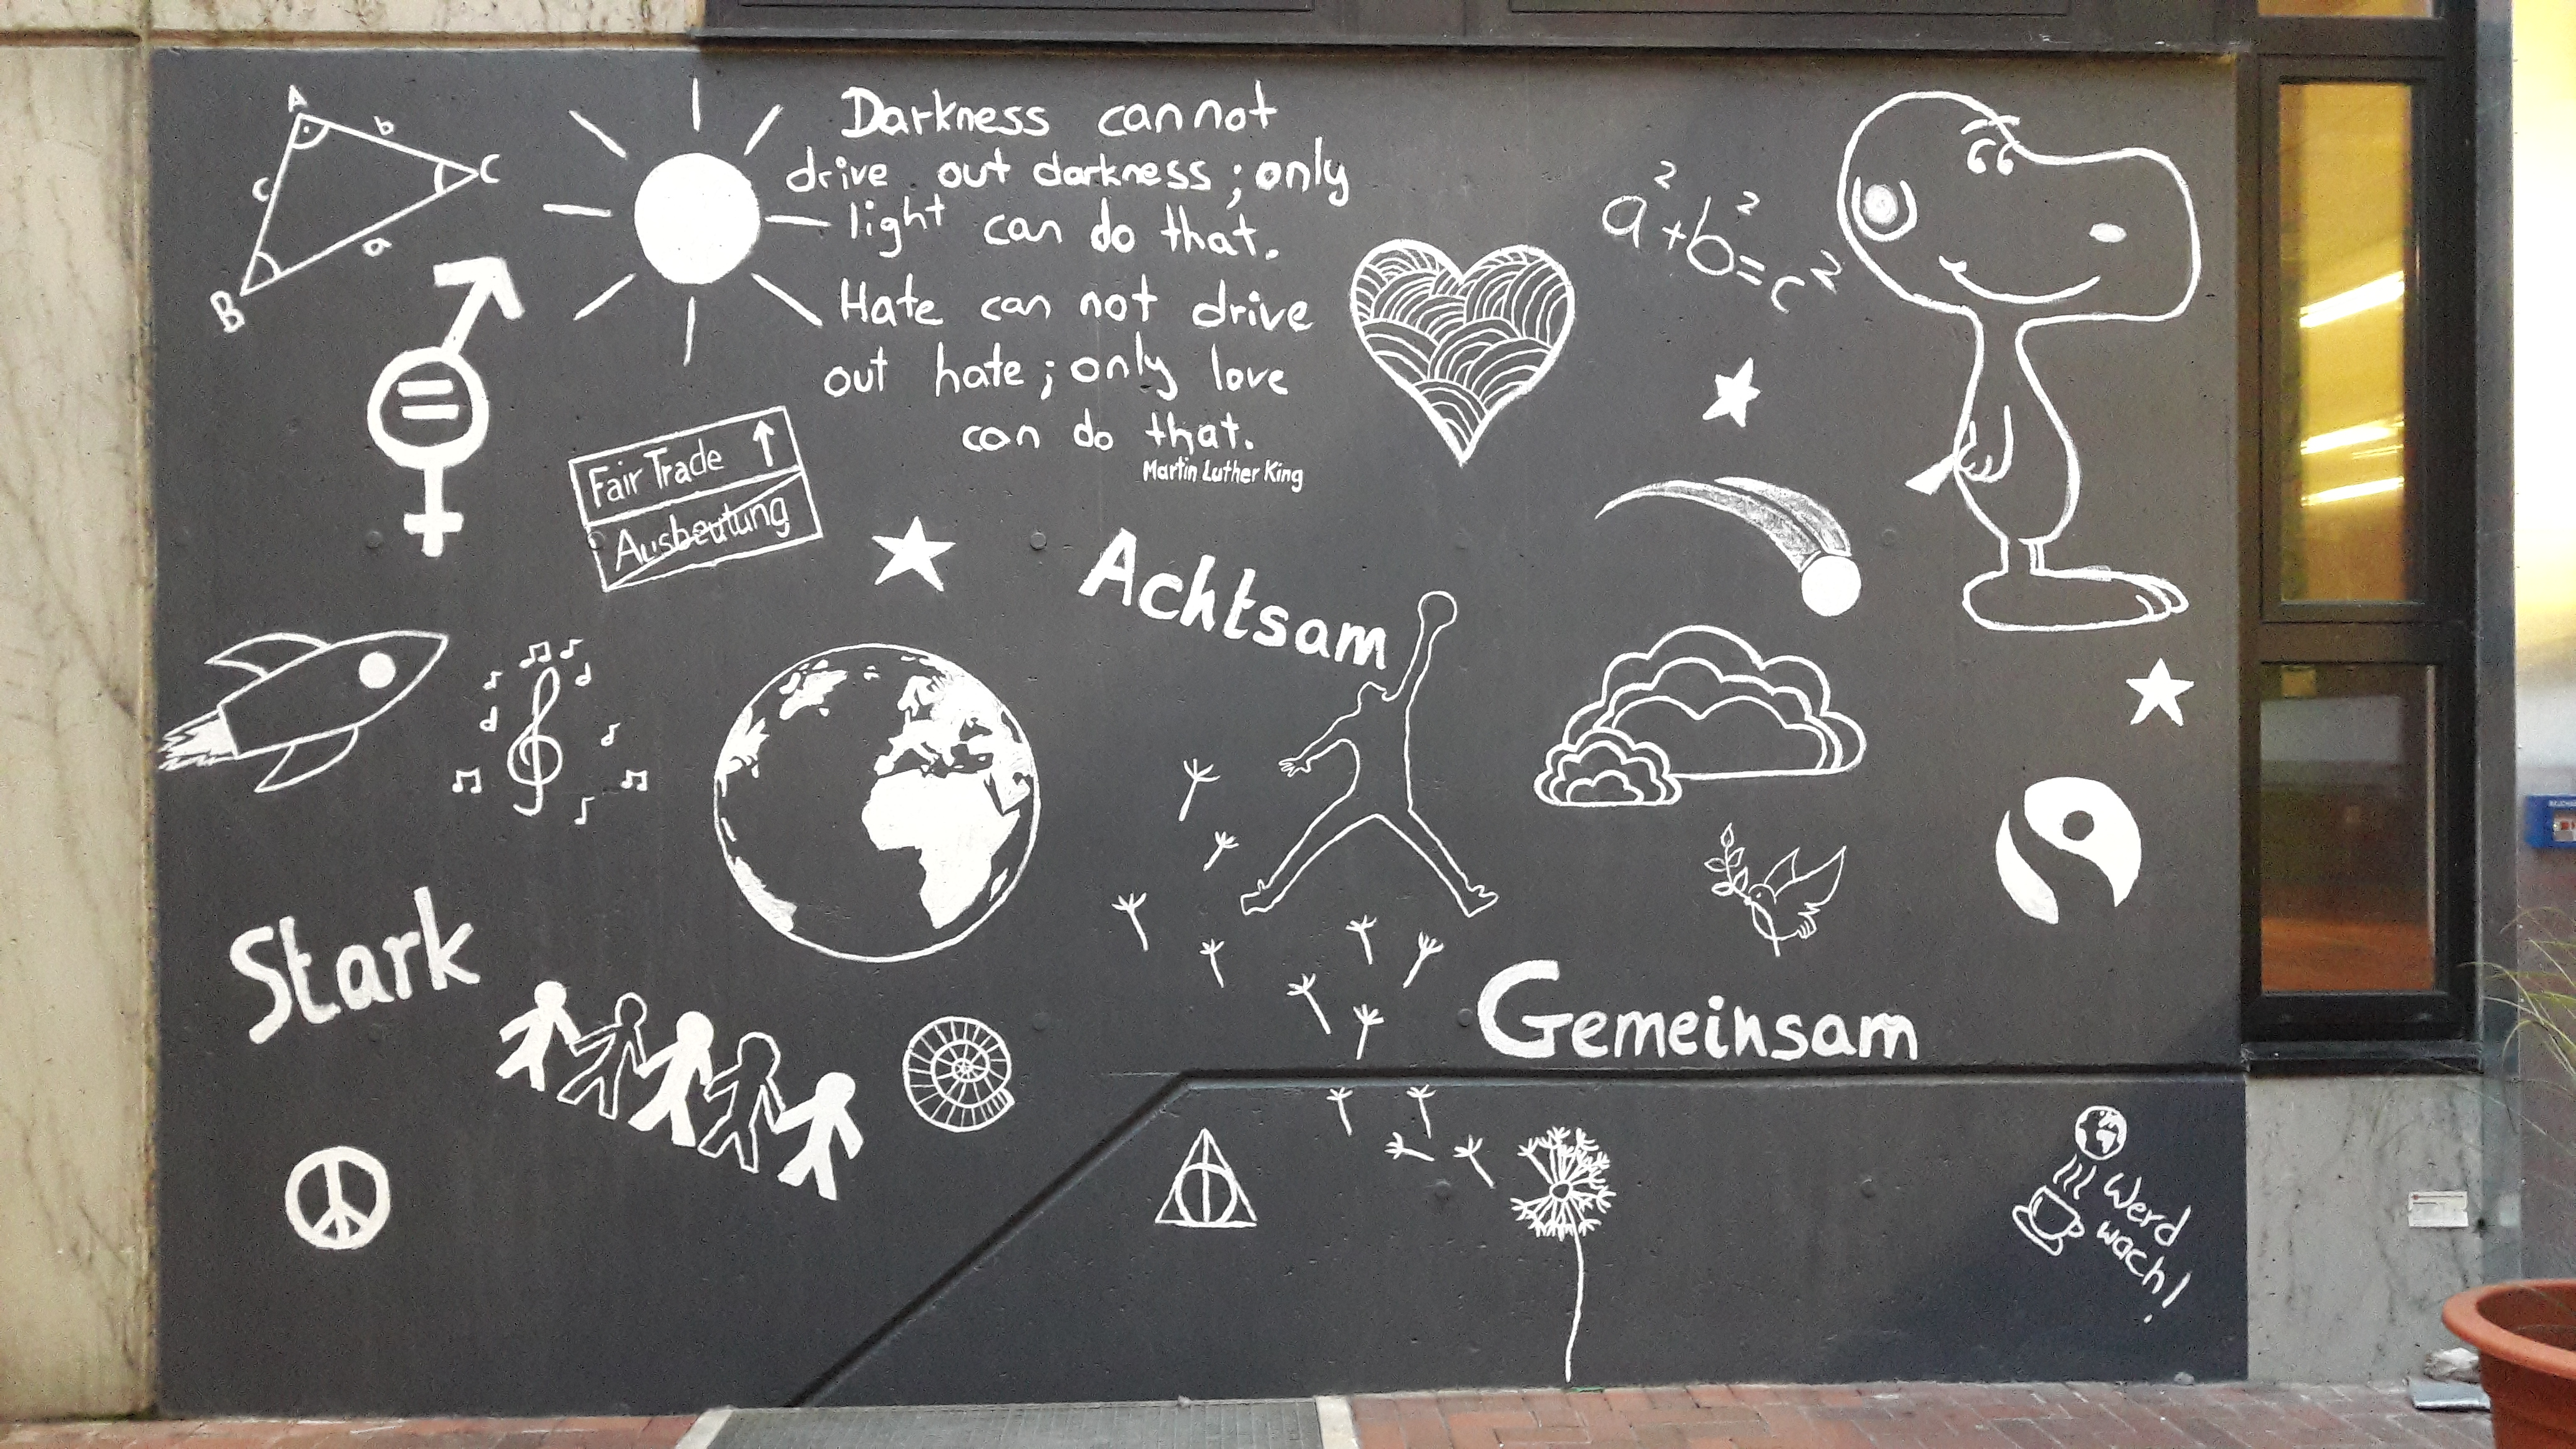 A
b
C
c
a
B
Darkness cannot
drive out darkness; only
light can do that.
Hate can not drive
out hate; only love
can do that.
Martin Luther King
a²+b²=c²
Fair Trade ↑
Ausbeutung
Achtsam
Stark
Gemeinsam
Werd
wach!